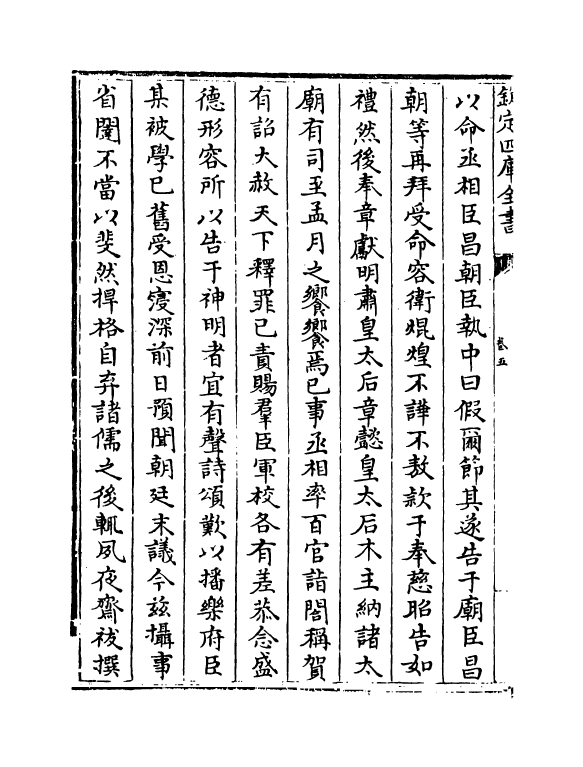 欽定四庫全書
卷五
以命丞相臣昌朝臣執中曰假爾節其遂告于廟臣昌
朝等再拜受命容衛焜煌不譁不敖款于奉慈昭告如
禮然後奉章獻明肅皇太后章懿皇太后木主納諸太
廟有司至孟月之饗饗焉已事丞相率百官詣閤稱賀
有詔大赦天下釋罪已責賜羣臣軍校各有差恭念盛
德形容所以告于神明者宜有聲詩頌歎以播樂府臣
某被學已舊受恩寖深前日預聞朝廷末議今兹攝事
省闥不當以斐然捍格自弃諸儒之後輒夙夜齋祓撰